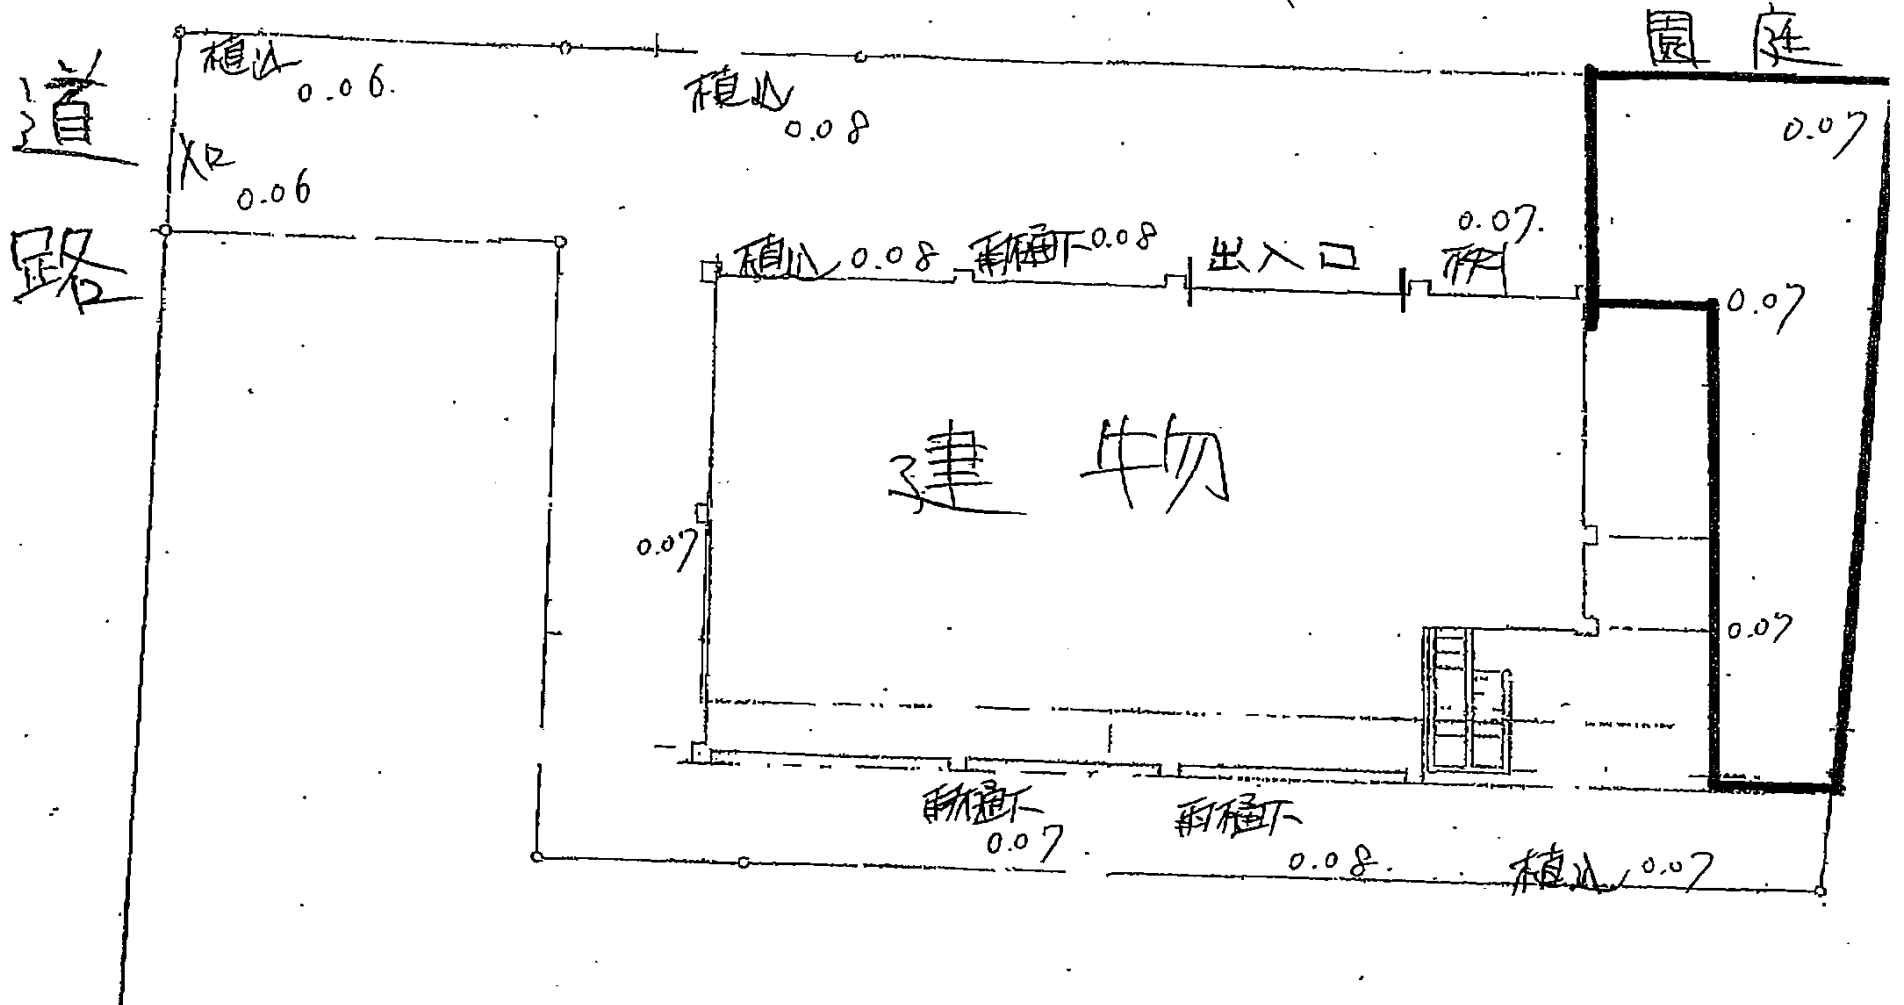 道路
植込
0.06
入口
0.06
植込
0.08
園庭
0.07
植込 0.08
雨樋下 0.08
出入口
0.07
0.07
建物
0.07
0.07
雨樋下
0.07
雨樋下
0.08
植込 0.07